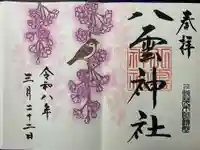 奉拝
八雲神社
令和八年
三月二十二日